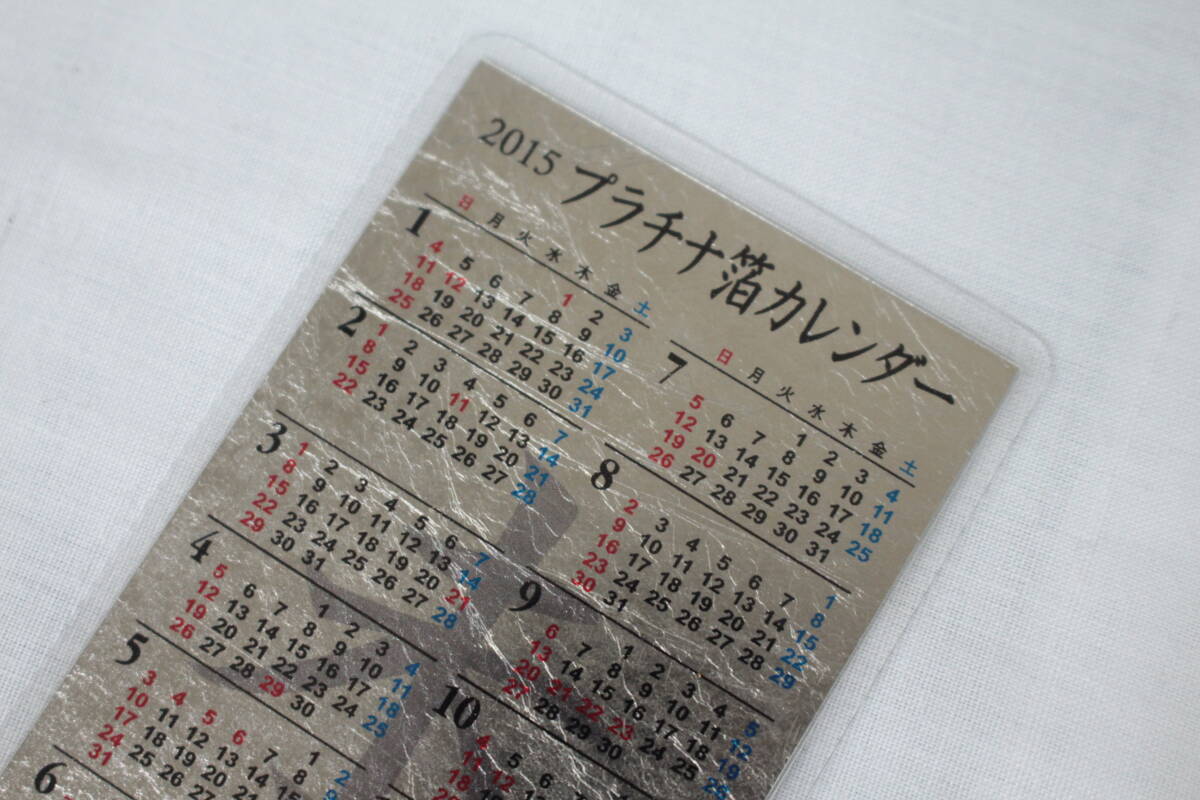 2015 プラチナ箔カレンダー
1
日 月 火 水 木 金 土
1 2 3
4 5 6 7 8 9 10
11 12 13 14 15 16 17
18 19 20 21 22 23 24
25 26 27 28 29 30 31
2
1 2 3 4 5 6 7
8 9 10 11 12 13 14
15 16 17 18 19 20 21
22 23 24 25 26 27 28
3
1 2 3 4 5 6 7
8 9 10 11 12 13 14
15 16 17 18 19 20 21
22 23 24 25 26 27 28
29 30 31
4
1 2 3 4
5 6 7 8 9 10 11
12 13 14 15 16 17 18
19 20 21 22 23 24 25
26 27 28 29 30
5
1 2
3 4 5 6 7 8 9
10 11 12 13 14
17 18 19 20 21
24 25 26 27 28
31
6
7
日 月 火 水 木 金 土
1 2 3 4
5 6 7 8 9 10 11
12 13 14 15 16 17 18
19 20 21 22 23 24 25
26 27 28 29 30 31
8
1
2 3 4 5 6 7 8
9 10 11 12 13 14 15
16 17 18 19 20 21 22
23 24 25 26 27 28 29
30 31
9
1 2 3 4 5
6 7 8 9 10 11 12
13 14 15 16 17 18 19
20 21 22 23 24 25 26
27 28 29 30
10
4 5 6
11 12
18
25